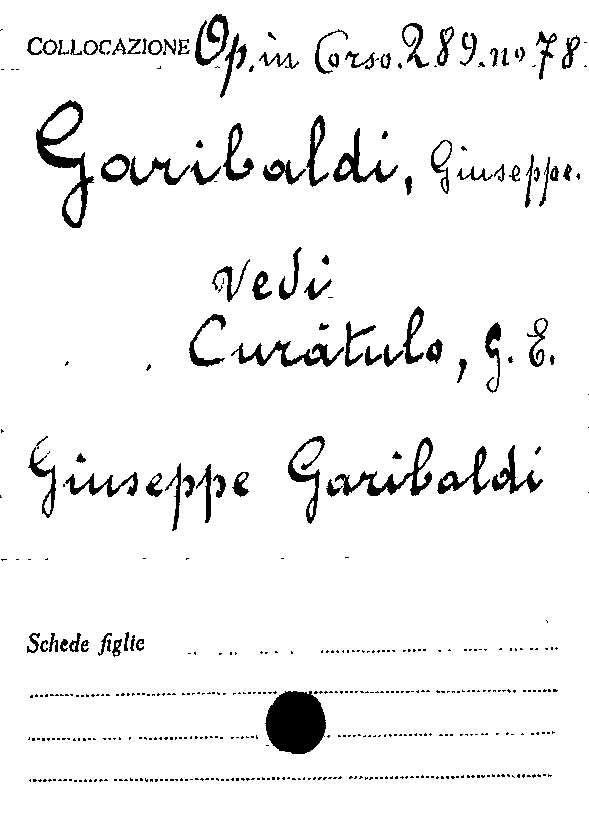 COLLOCAZIONE Op. in Corso. 289. no 78
Garibaldi, Giuseppe.
Vedi
Curàtulo, G. E.
Giuseppe Garibaldi
Schede figlie